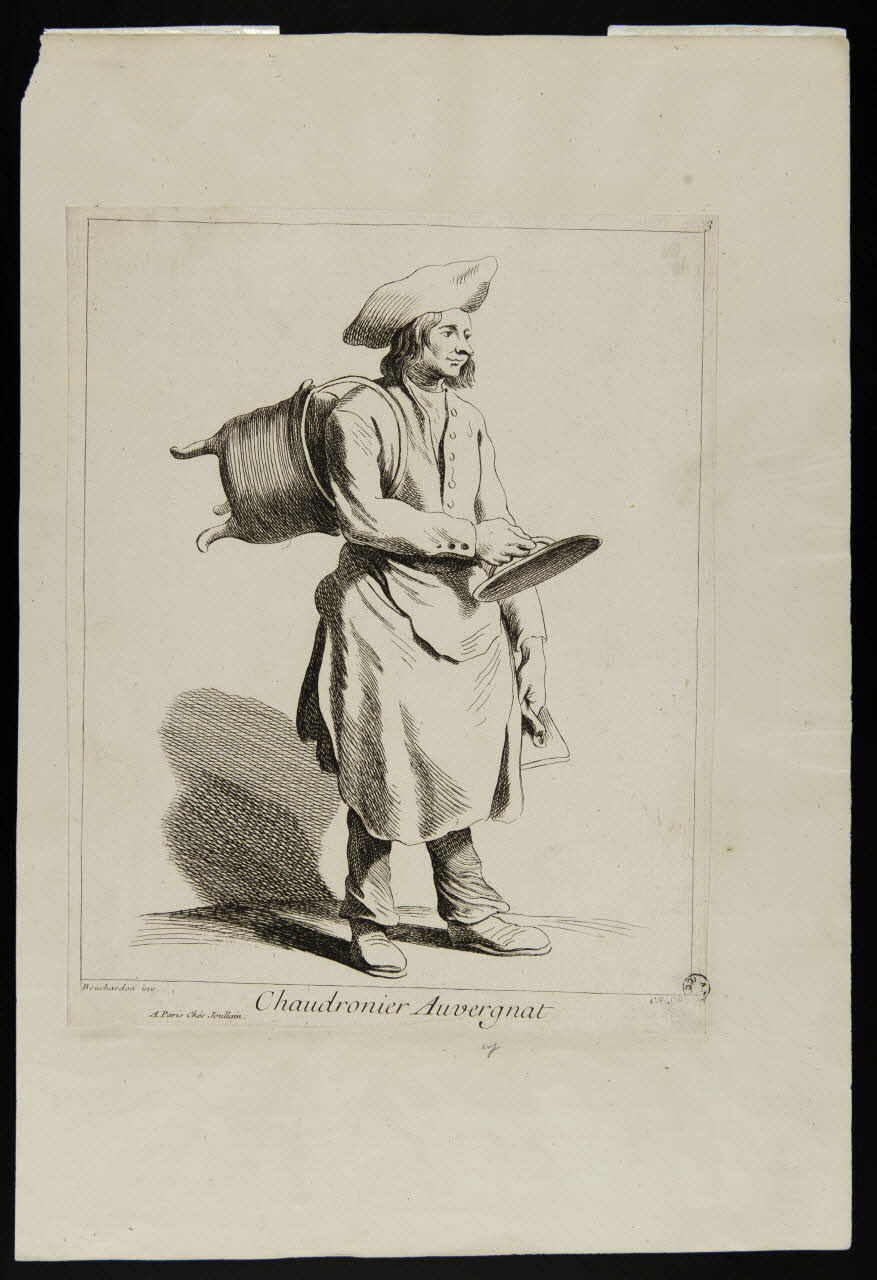 3
Bouchardon inv.
Chaudronier Auvergnat
A Paris Chés Joullain.